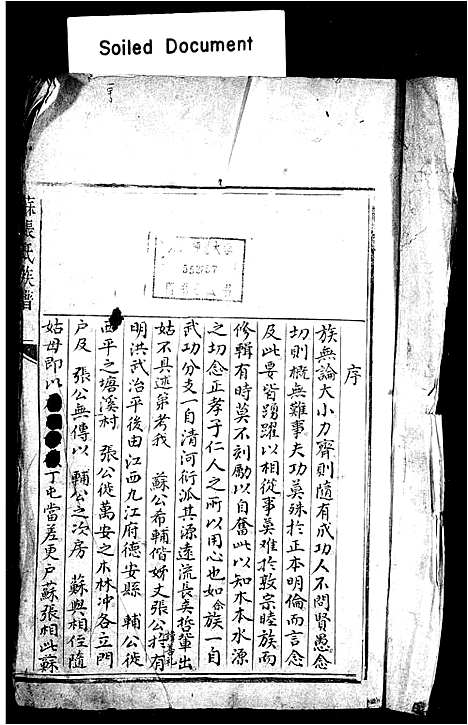 Soiled Document
蘇張氏族譜
352757
序
族無論大小力齊則隨有成功人不問賢愚念
切則概無難事夫功莫殊於正本明倫而言念
及此要皆踴躍以相從事莫难於敦宗睦族而
修輯有時莫不刻勵以自奮此以知水本水源
之切念正孝子仁人之所以用心也如僉族一自
武功分支一自清河衍派其源遠流長英哲輩出
姑不具述第考我 蘇公希輔偕嬌丈張公 有
明洪武治平後由江西九江府德安縣 輔公徙
西平之塘溪村 張公徙萬安之木林冲各立門
戶及 張公無傳以 輔公之次房 蘇與相住隨
姑母即以 丁屯當差更戶蘇張相此蘇